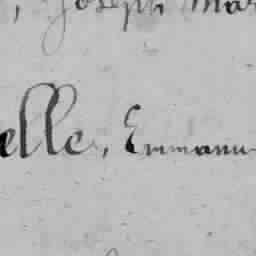 , Joseph Mar
elle, Emmanu